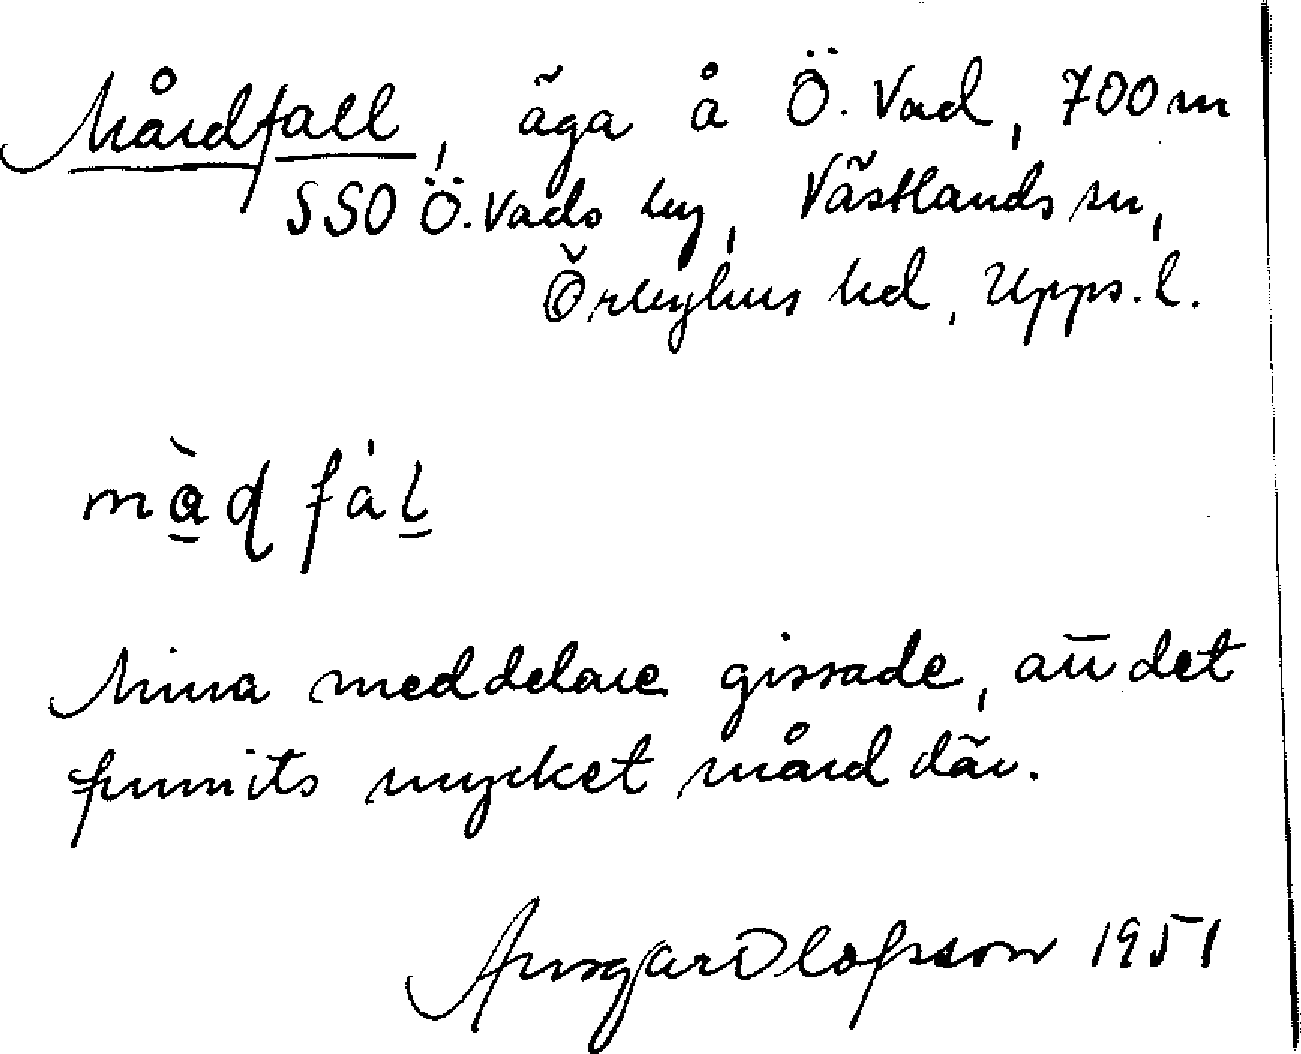 Mårdfall, äga å Ö. Vad, 700 m
SSO Ö. Vads by, Västlands sn,
Örbyhus hd, Upps. l.
Mina meddelare gissade, att det
funnits mycket mård där.
Ansgar Olofsson 1951